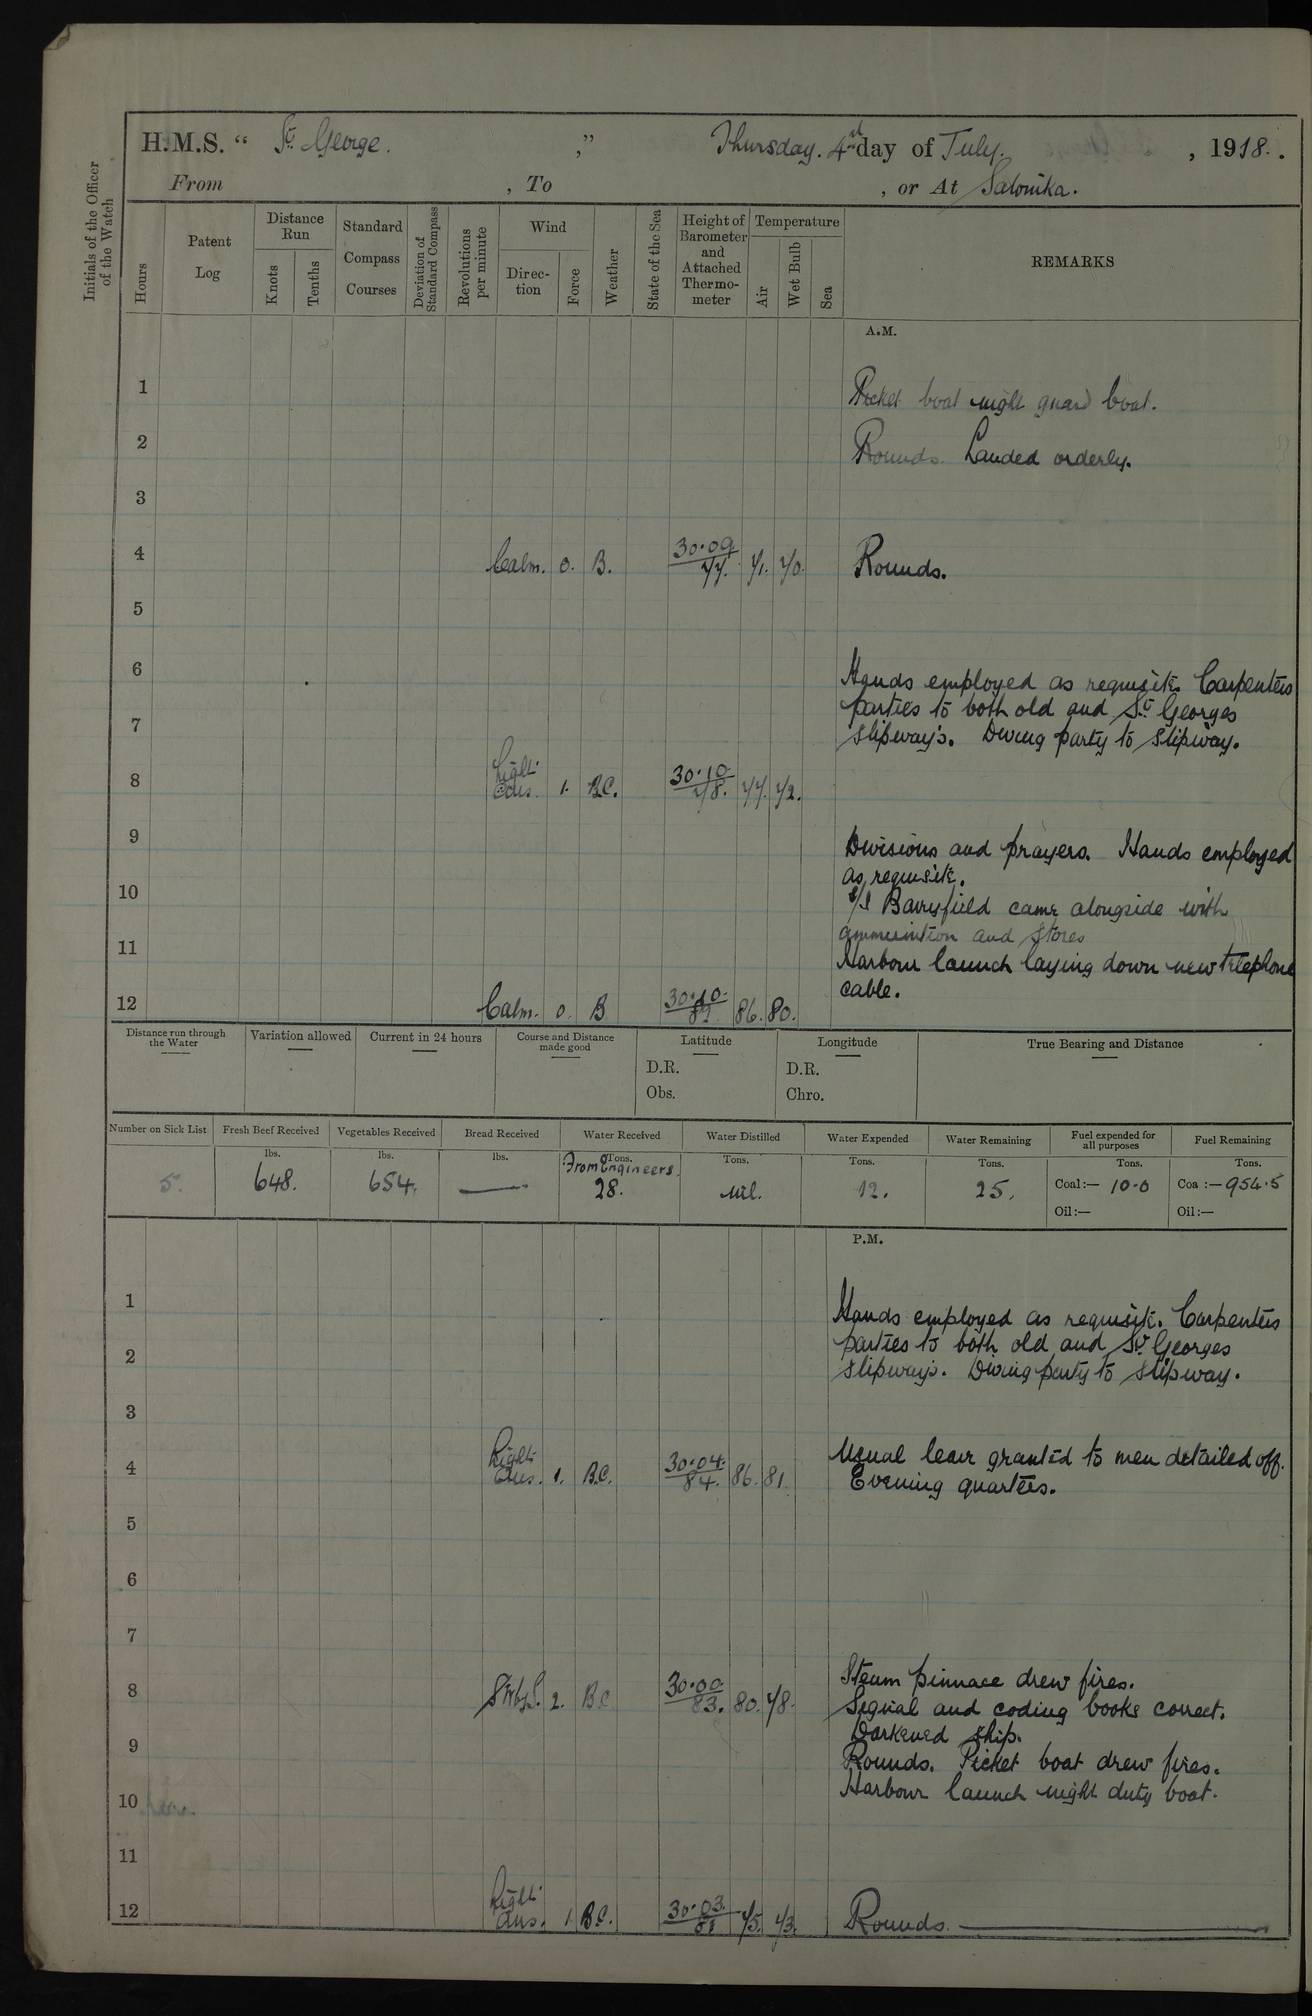 H.M.S. “ St George. ,” Thursday. 4rd day of July. , 1918. .
From , To , or At Salonika.
Initials of the Officer of the Watch
Hours
Patent Log
Distance Run
Knots
Tenths
Standard Compass Courses
Deviation of Standard Compass
Revolutions per minute
Wind
Direc-tion
Force
Weather
State of the Sea
Height of Barometer and Attached Thermo-meter
Temperature
Air
Wet Bulb
Sea
REMARKS
A.M.
1
Picket boat night guard boat.
2
Rounds. Landed orderly.
3
4 Calm. 0. B. 30.09 77. 71. 70. Rounds.
5
6
Hands employed as requisite Carpenters
parties to both old and St Georges
7
slipway's. Diving party to slipway.
8 Light 1. B.C. 30.10 78. 77. 72.
9
Divisions and prayers. Hands employed
as requisite.
10
S/S Barryfield came alongside with
ammunition and stores
11
Harbour launch laying down new telephone
cable.
12 Calm. 0. B 30.10 86. 80.
Distance run through the Water
Variation allowed
Current in 24 hours
Course and Distance made good
Latitude
D.R.
Obs.
Longitude
D.R.
Chro.
True Bearing and Distance
Number on Sick List
5.
Fresh Beef Received
lbs.
648.
Vegetables Received
lbs.
654.
Bread Received
lbs.
Water Received
Tons.
From Engineers
28.
Water Distilled
Tons.
nil.
Water Expended
Tons.
12.
Water Remaining
Tons.
25.
Fuel expended for all purposes
Tons.
Coal:— 10.0
Oil:—
Fuel Remaining
Tons.
Coa :— 954.5
Oil:—
P.M.
1
Hands employed as requisite. Carpenters
parties to both old and St Georges
2
slipway's. Diving party to slipway.
3
4 Light 1. B.C. 30.04. 84. 86. 81.
Usual leave granted to men detailed off.
Evening quarters.
5
6
7
Steam pinnace drew fires.
8 SWbyS. 2. B.C 30.00. 83. 80. 78.
Signal and coding books correct.
Darkened ship.
9
Rounds. Picket boat drew fires.
Harbour launch night duty boat.
10
11
12 Light 1. B.C. 30.03. 81 75. 73. Rounds.